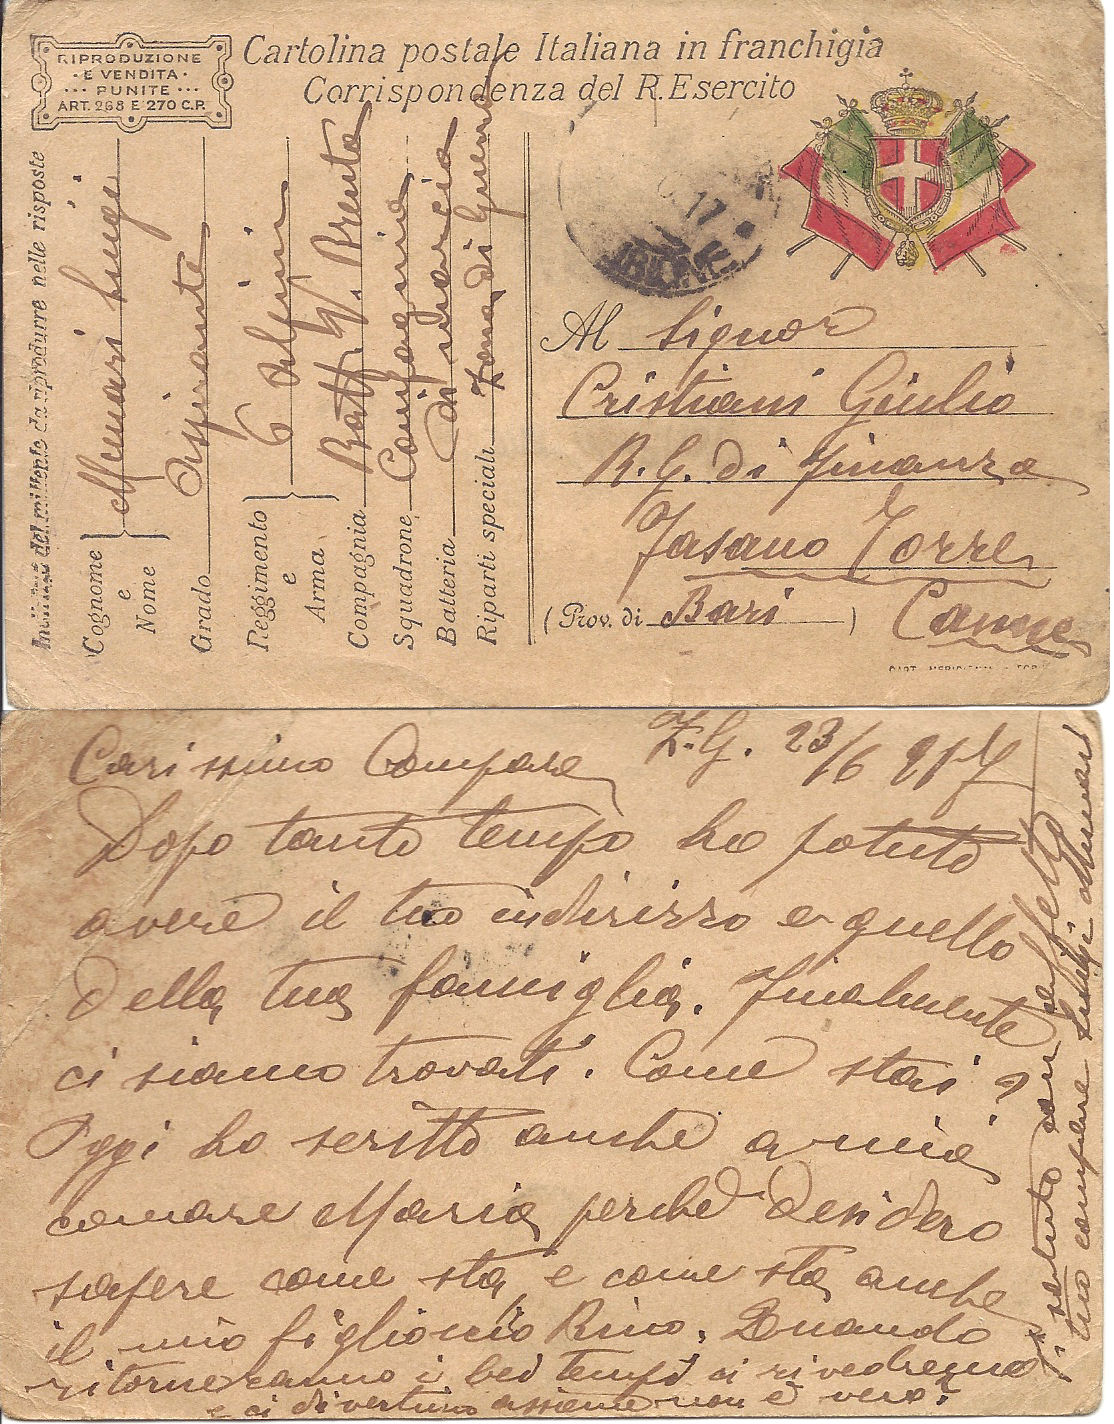 RIPRODUZIONE
E VENDITA
PUNITE
ART. 268 E 270 C.P.
Cartolina postale Italiana in franchigia
Corrispondenza del R. Esercito
del mittente da riprodurre nelle risposte
Cognome e Nome Luigi
Grado Aspirante
Reggimento e Arma 6 Alpini
Compagnia Batt. V. Brenta
Squadrone Compagnia
Batteria di marcia
Riparti speciali Zona di Guerra
17
Al Signor
Cristiani Giulio
R. G. di Finanza
Fasano Torre
Canne
(Prov. di Bari)
Z. G. 23/6 917
Carissimo Compare
Dopo tanto tempo ho potuto
avere il tuo indirizzo e quello
della tua famiglia. Finalmente
ci siamo trovati. Come stai?
Oggi ho scritto anche a mia
comare Maria perché desidero
sapere come sta, e come sta anche
il mio figlioccio Rino. Quando
ritorneranno i bei tempi ci rivedremo
e ci divertiremo assieme non è vero?
Ti saluto con affetto
tuo compare Luigi